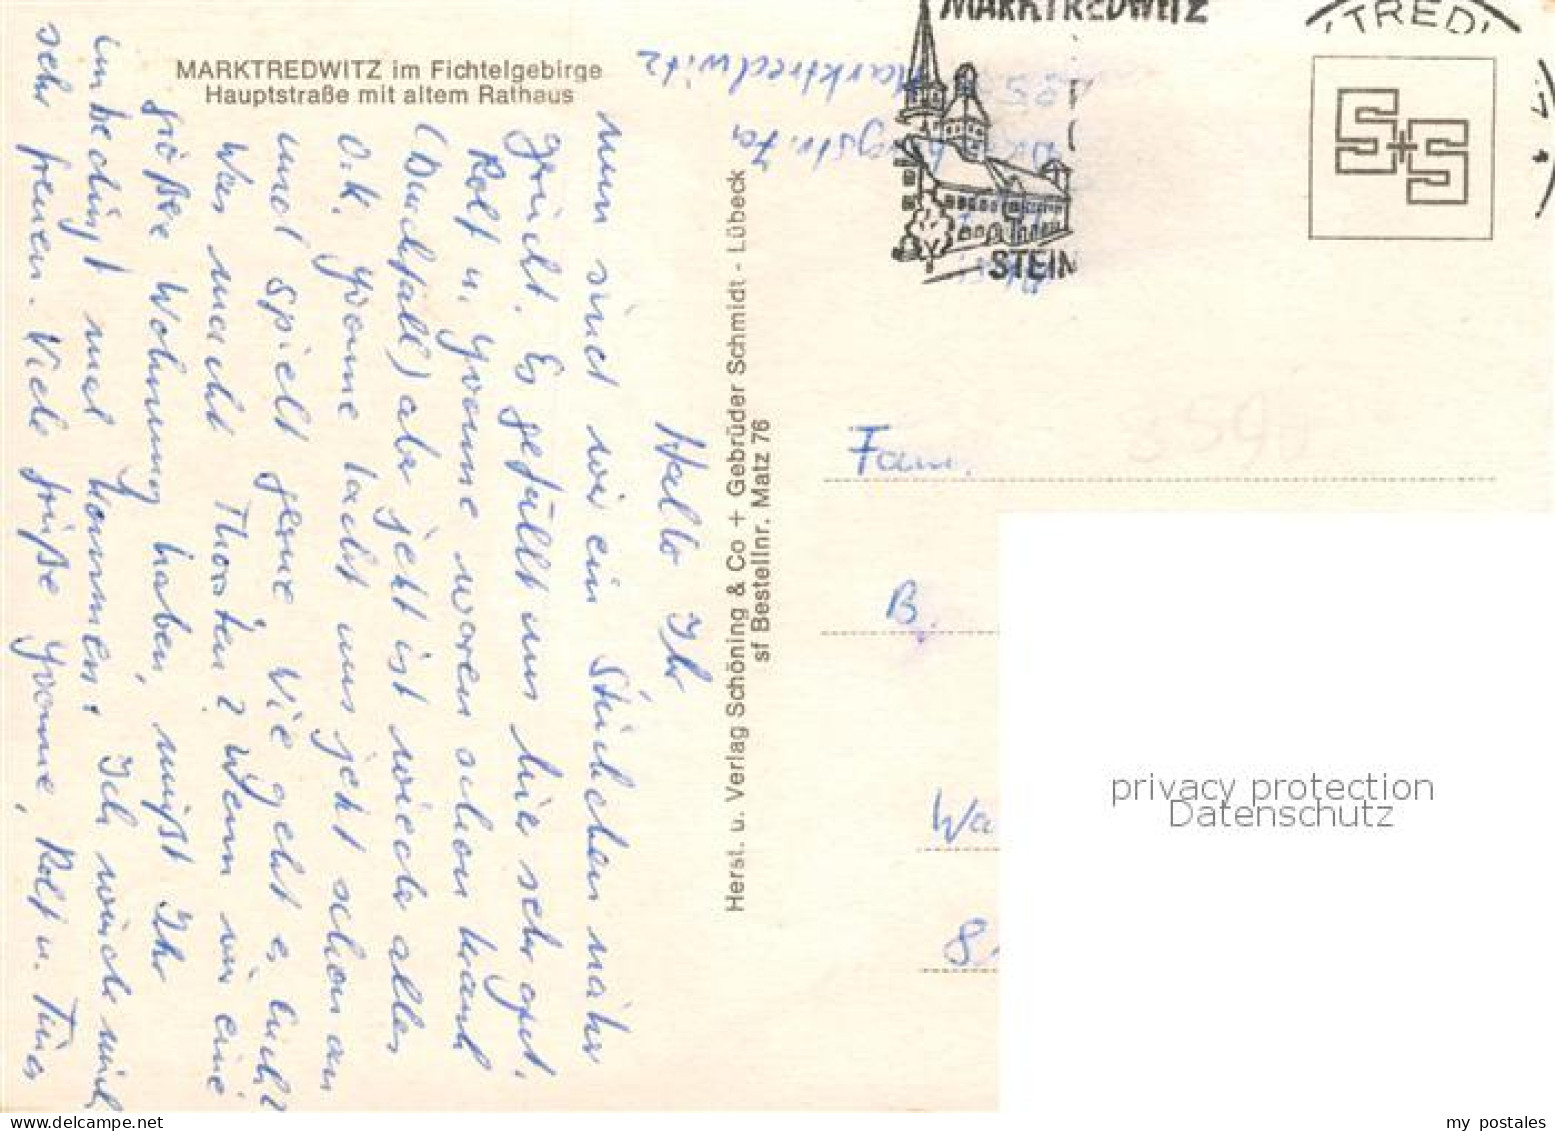 MARKTREDWITZ im Fichtelgebirge
Hauptstraße mit altem Rathaus
Hallo Ihr
nun sind wir ein Stückchen näher
gerückt. Es gefällt uns hier sehr gut.
Rolf u. Yvonne waren schon krank
(Durchfall) aber jetzt ist wieder alles
O.K. Yvonne lacht uns jetzt schon an
und spielt gerne. Wie geht es Euch?
Was macht Thorsten? Wenn wir eine
größere Wohnung haben, müßt Ihr
unbedingt mal kommen. Ich würde mich
sehr freuen. Viele Grüße Yvonne, Rolf u.
Herst. u. Verlag Schöning & Co + Gebrüder Schmidt - Lübeck
sf Bestellnr. Matz 76
Marktredwitz
MARKTREDWITZ
STEIN
TRED
S+S
Fam.
B.
Wa
8
privacy protection
Datenschutz
my postales